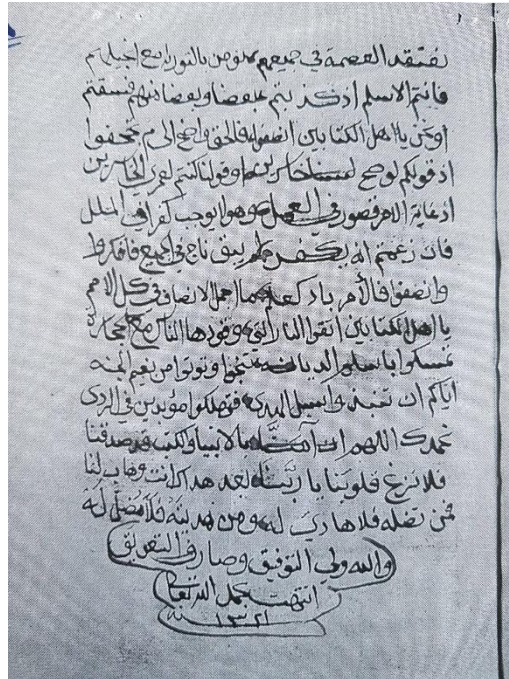 نعتقد العصمة في جميعهم نؤمن بالتوراة مع انجيلهم
فانتم الاسلم اذ كذبتم بعضا وبعضا منهم فسقتم
او نحن يا اهل الكتابين انصفوا فالحق واضح الى م تجحفوا
اذ قولكم لو صح لسنا خاسرين او قولنا كنتم لعمري الخاسرين
اذ غاية الامر قصور في العمل وهو لا يوجب كفرا في الملل
فان زعمتم انه يكفر لم يبق ناج في الجميع فافكروا
وانصفوا فالأمر باد كعلم ما اجمل الانصاف في كل الامم
يا اهل الكتابين اتقوا النار التي وقودها الناس مع الحجارة
تمسكوا باسلم الديانة تنجوا وتوتوا من نعيم الجنه
اياكم ان تنبذوا سبل الهدى فتهلكوا مؤبدين في الردى
نحمدك اللهم ان آمنا بالانبيا والكتب قد صدقنا
فلا تزغ قلوبنا يا ربنا بعد هدا كانت وهاب لنا
فمن تضله فلا هادي له ومن هديته فلا مضل له
والله ولي التوفيق وصارف التعويق
انتهت بحمد الله تعالى
١٣٢١ سنة